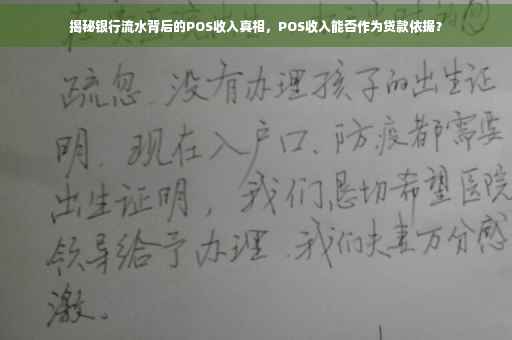 揭秘银行流水背后的POS收入真相，POS收入能否作为贷款依据？
疏忽、没有办理孩子的出生证
明。现在入户口、防疫都需要
出生证明，我们恳切希望医院
领导给予办理、我们夫妻万分感
激。